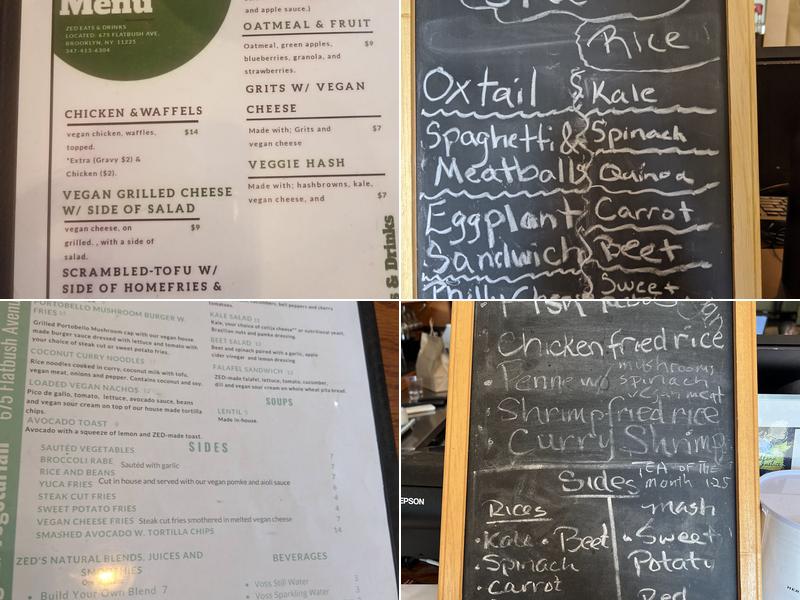 Menu
ZED EATS & DRINKS
LOCATED: 675 FLATBUSH AVE.
BROOKLYN, NY 11225
347-413-6304
CHICKEN &WAFFELS
vegan chicken, waffles, $14
topped.
*Extra (Gravy $2) &
Chicken ($2).
VEGAN GRILLED CHEESE
W/ SIDE OF SALAD
vegan cheese, on $9
grilled. , with a side of
salad.
SCRAMBLED-TOFU W/
SIDE OF HOMEFRIES &
and apple sauce.)
OATMEAL & FRUIT
Oatmeal, green apples, $9
blueberries, granola, and
strawberries.
GRITS W/ VEGAN
CHEESE
Made with; Grits and $7
vegan cheese
VEGGIE HASH
Made with; hashbrowns, kale, $7
vegan cheese, and
s & Drinks
Rice
Oxtail
Spaghetti &
Meatballs
Eggplant
Sandwich
Philly
Kale
Spinach
Quinoa
Carrot
Beet
Sweet
675 Flatbush Avenu
PORTOBELLO MUSHROOM BURGER W.
FRIES
Grilled Portobello Mushroom cap with our vegan house
made burger sauce dressed with lettuce and tomato with
your choice of steak cut or sweet potato fries.
COCONUT CURRY NOODLES
Rice noodles cooked in curry, coconut milk with tofu,
vegan meat, onions and pepper. Contains coconut and soy.
LOADED VEGAN NACHOS
Pico de gallo, tomato, lettuce, avocado sauce, beans
and vegan sour cream on top of our house made tortilla
chips.
AVOCADO TOAST
Avocado with a squeeze of lemon and ZED-made toast.
cucumbers, bell peppers and cherry
tomatoes.
KALE SALAD
Kale, your choice of celija cheese™ or nutritional yeast,
Brazilian nuts and pomke dressing.
BEET SALAD
Beet and spinach paired with a garlic, apple
cider vinegar and lemon dressing
FALAFEL SANDWICH
ZED-made falafel, lettuce, tomato, cucumber,
dill and vegan sour cream on whole wheat pita bread.
SOUPS
LENTIL
Made in-house.
SIDES
SAUTÉD VEGETABLES 7
BROCCOLI RABE Sautéd with garlic 7
RICE AND BEANS
YUCA FRIES Cut in house and served with our vegan pomke and aioli sauce
STEAK CUT FRIES 4
SWEET POTATO FRIES 4
VEGAN CHEESE FRIES Steak cut fries smothered in melted vegan cheese 7
SMASHED AVOCADO W. TORTILLA CHIPS 14
ZED'S NATURAL BLENDS, JUICES AND
SMOOTHIES
• Build Your Own Blend 7
BEVERAGES
• Voss Still Water 3
• Voss Sparkling Water 3
Chicken fried rice
• Penne w/ mushrooms
spinach
vegan meat
Shrimp fried rice
Curry Shrimp
TEA OF THE
month 125
Sides
Rices
• Kale • Beet
• Spinach
• Carrot
mash
• Sweet
Potato
Red
EPSON